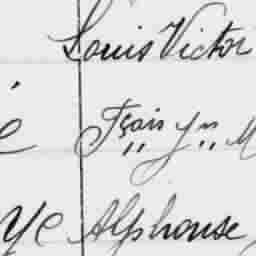 Louis Victor
é Fçois Jn M
ye Alphonse